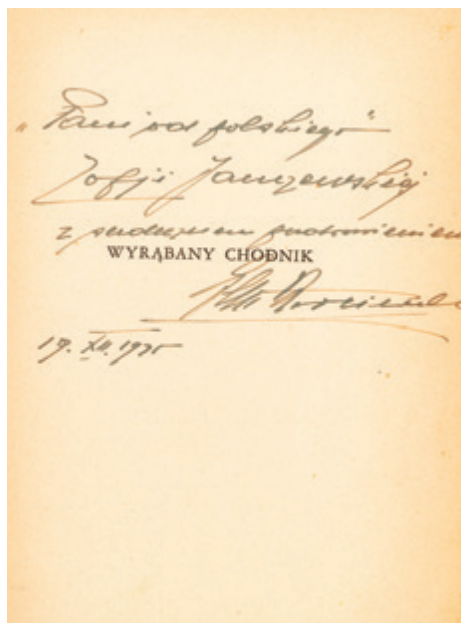 „Pani od polskiego"
Zofji Janczewskiej
z serdecznem pozdrowieniem
WYRĄBANY CHODNIK
19. XII. 1935